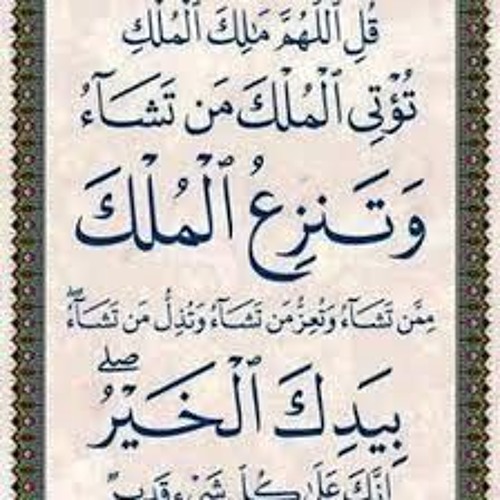 قُلِ ٱللَّهُمَّ مَٰلِكَ ٱلْمُلْكِ
تُؤْتِى ٱلْمُلْكَ مَن تَشَآءُ
وَتَنزِعُ ٱلْمُلْكَ
مِمَّن تَشَآءُ وَتُعِزُّ مَن تَشَآءُ وَتُذِلُّ مَن تَشَآءُ ۖ
بِيَدِكَ ٱلْخَيْرُ ۖ
إِنَّكَ عَلَىٰ كُلِّ شَىْءٍ قَدِيرٌ